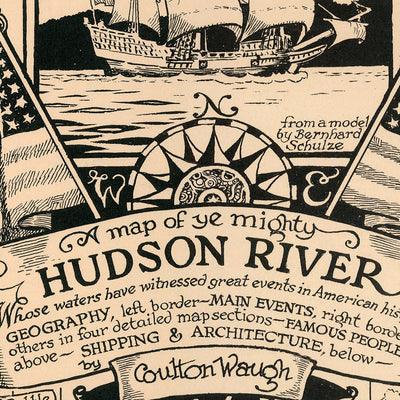 N
from a model
by Bernhard
Schulze
W
E
A map of ye mighty
HUDSON RIVER
Whose waters have witnessed great events in American his
GEOGRAPHY, left border~MAIN EVENTS, right borde
others in four detailed map sections~FAMOUS PEOPLE
above~ SHIPPING & ARCHITECTURE, below~
by
Coulton Waugh